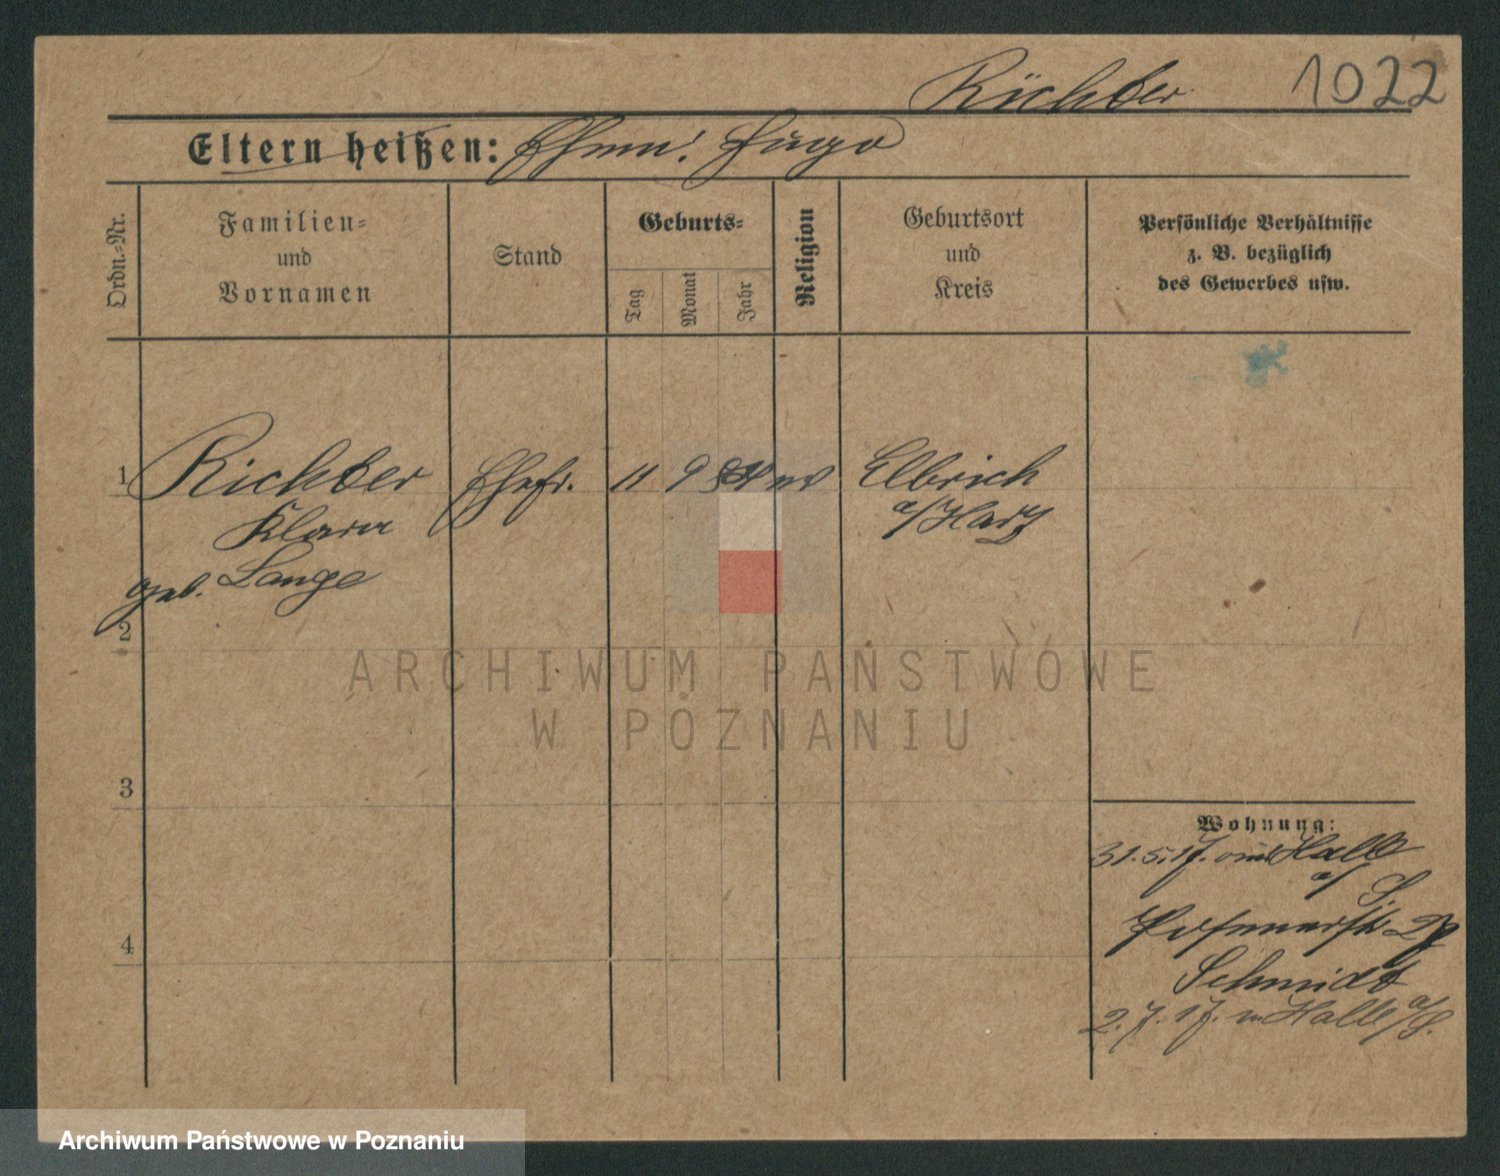 Richter 1022
Eltern heißen: Ehem. Hugo
Ordn.-Nr.
Familien-
und
Vornamen
Stand
Geburts-
Tag
Monat
Jahr
Religion
Geburtsort
und
Kreis
Persönliche Verhältnisse
z. B. bezüglich
des Gewerbes usw.
1 Richter Ehefr. 11 9 ev Elbrich
Klara a/Harz
geb. Lange
2
3
4
ARCHIWUM PAŃSTWOWE
W POZNANIU
Wohnung:
31.5.17. aus Halle
a/S.
Schmidt
2.7.17. n Halle a/S.
Archiwum Państwowe w Poznaniu